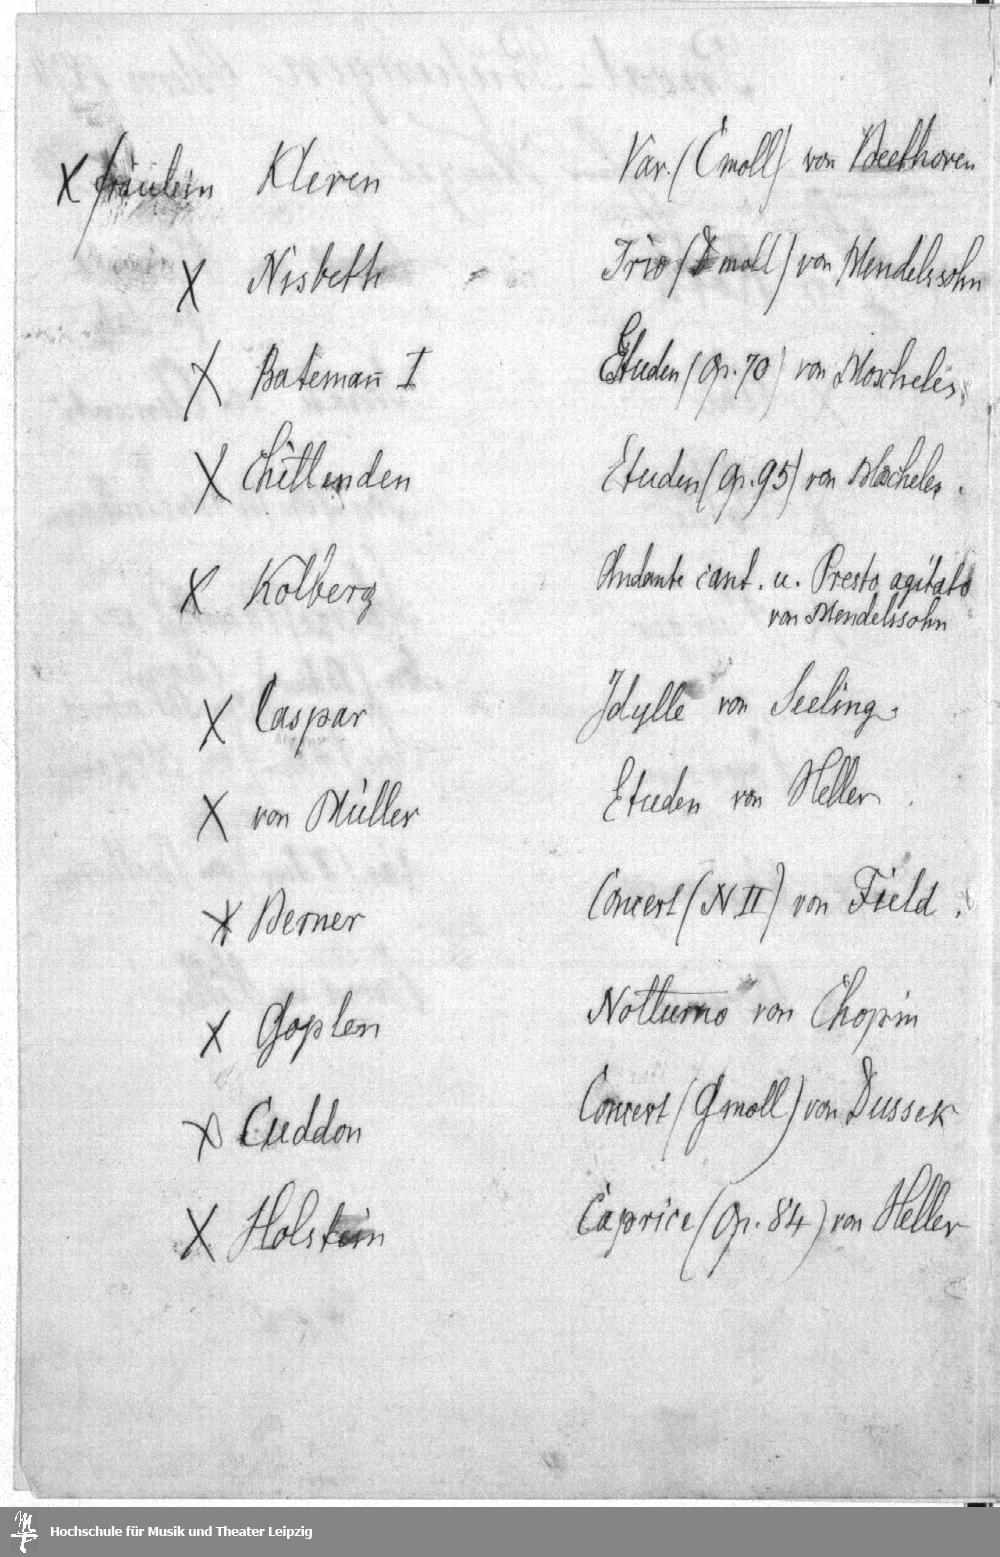 X Fräulein Kleren Var. (Cmoll) von Beethoven
X Nisbeth Trio (Dmoll) von Mendelssohn
X Batemañ I Etuden (Op. 70) von Moscheles
X Chittenden Etuden (Op. 95) von Moscheles.
X Kolberg Andante cant. u. Presto agitato
von Mendelssohn
X Caspar Idylle von Seeling.
X von Müller Etuden von Heller.
X Berner Concert (N II) von Field.
X Goplen Notturno von Chopin
X Cuddon Concert (Gmoll) von Dussek
X Holstein Caprice (Op. 84) von Heller
Hochschule für Musik und Theater Leipzig